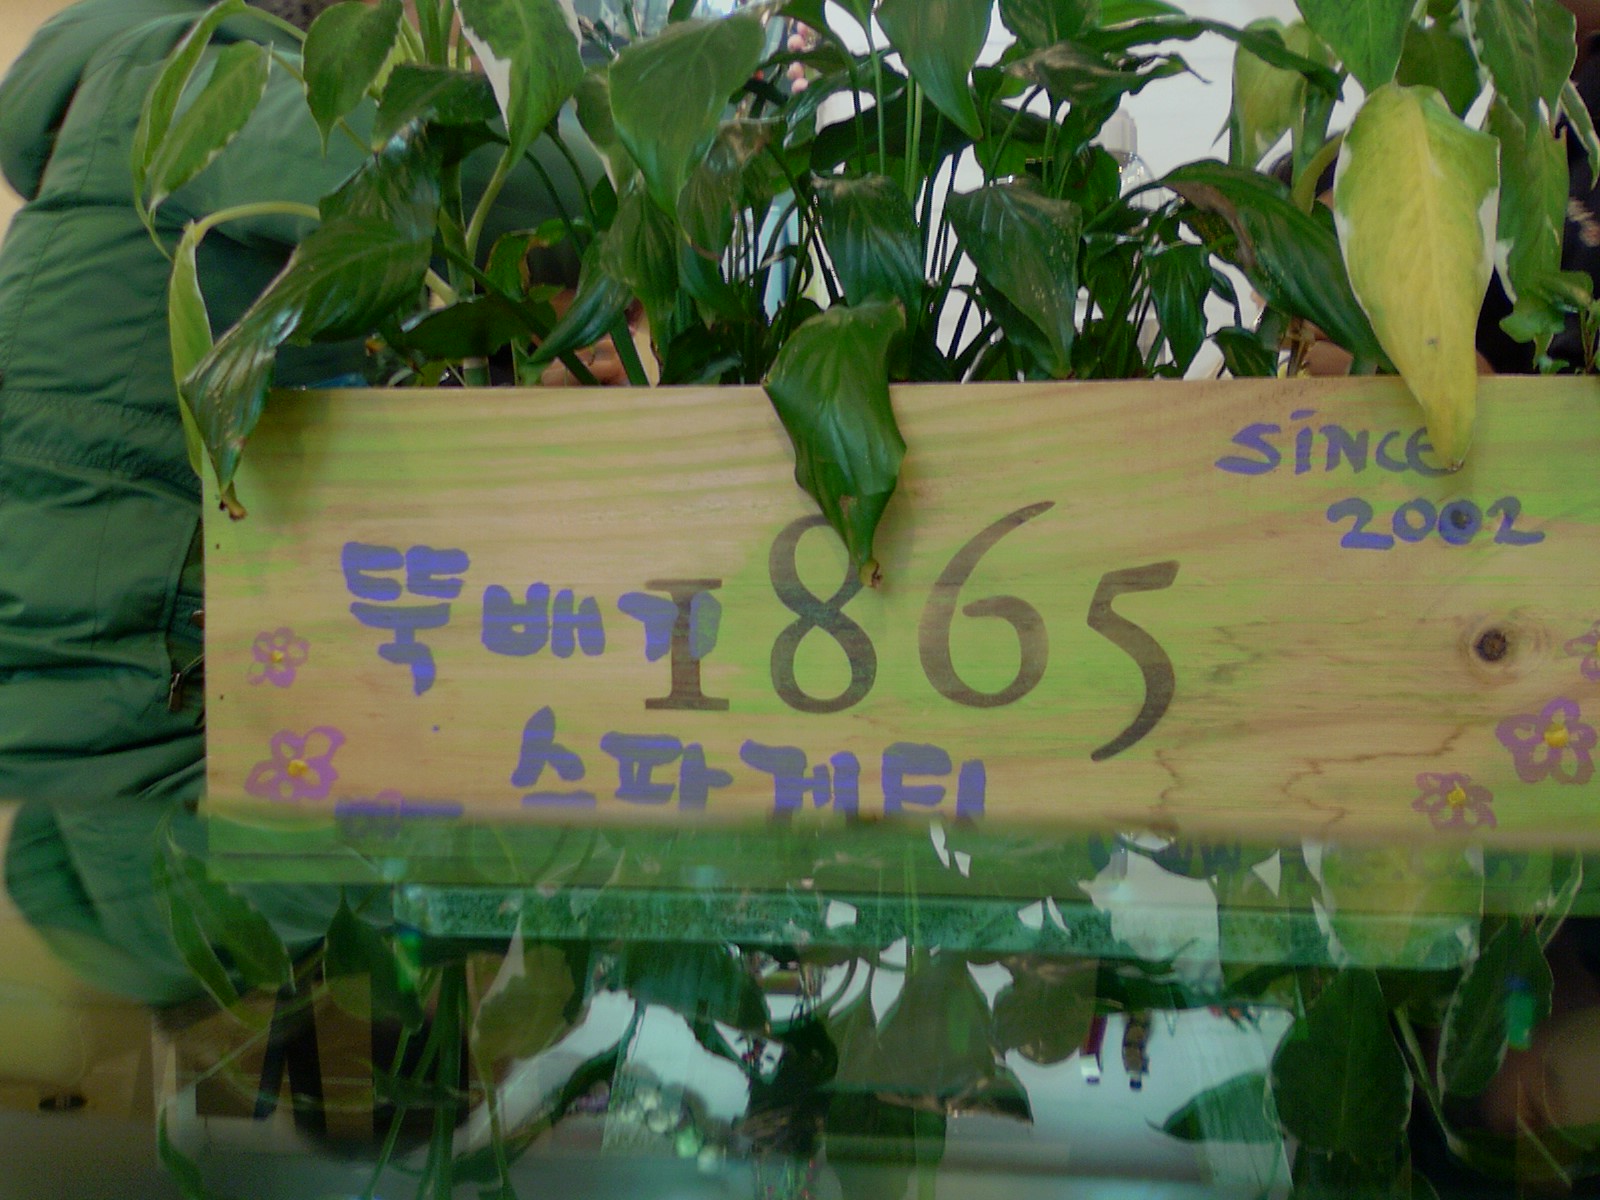 SINCE
2002
뚝배기
1865
스파게티